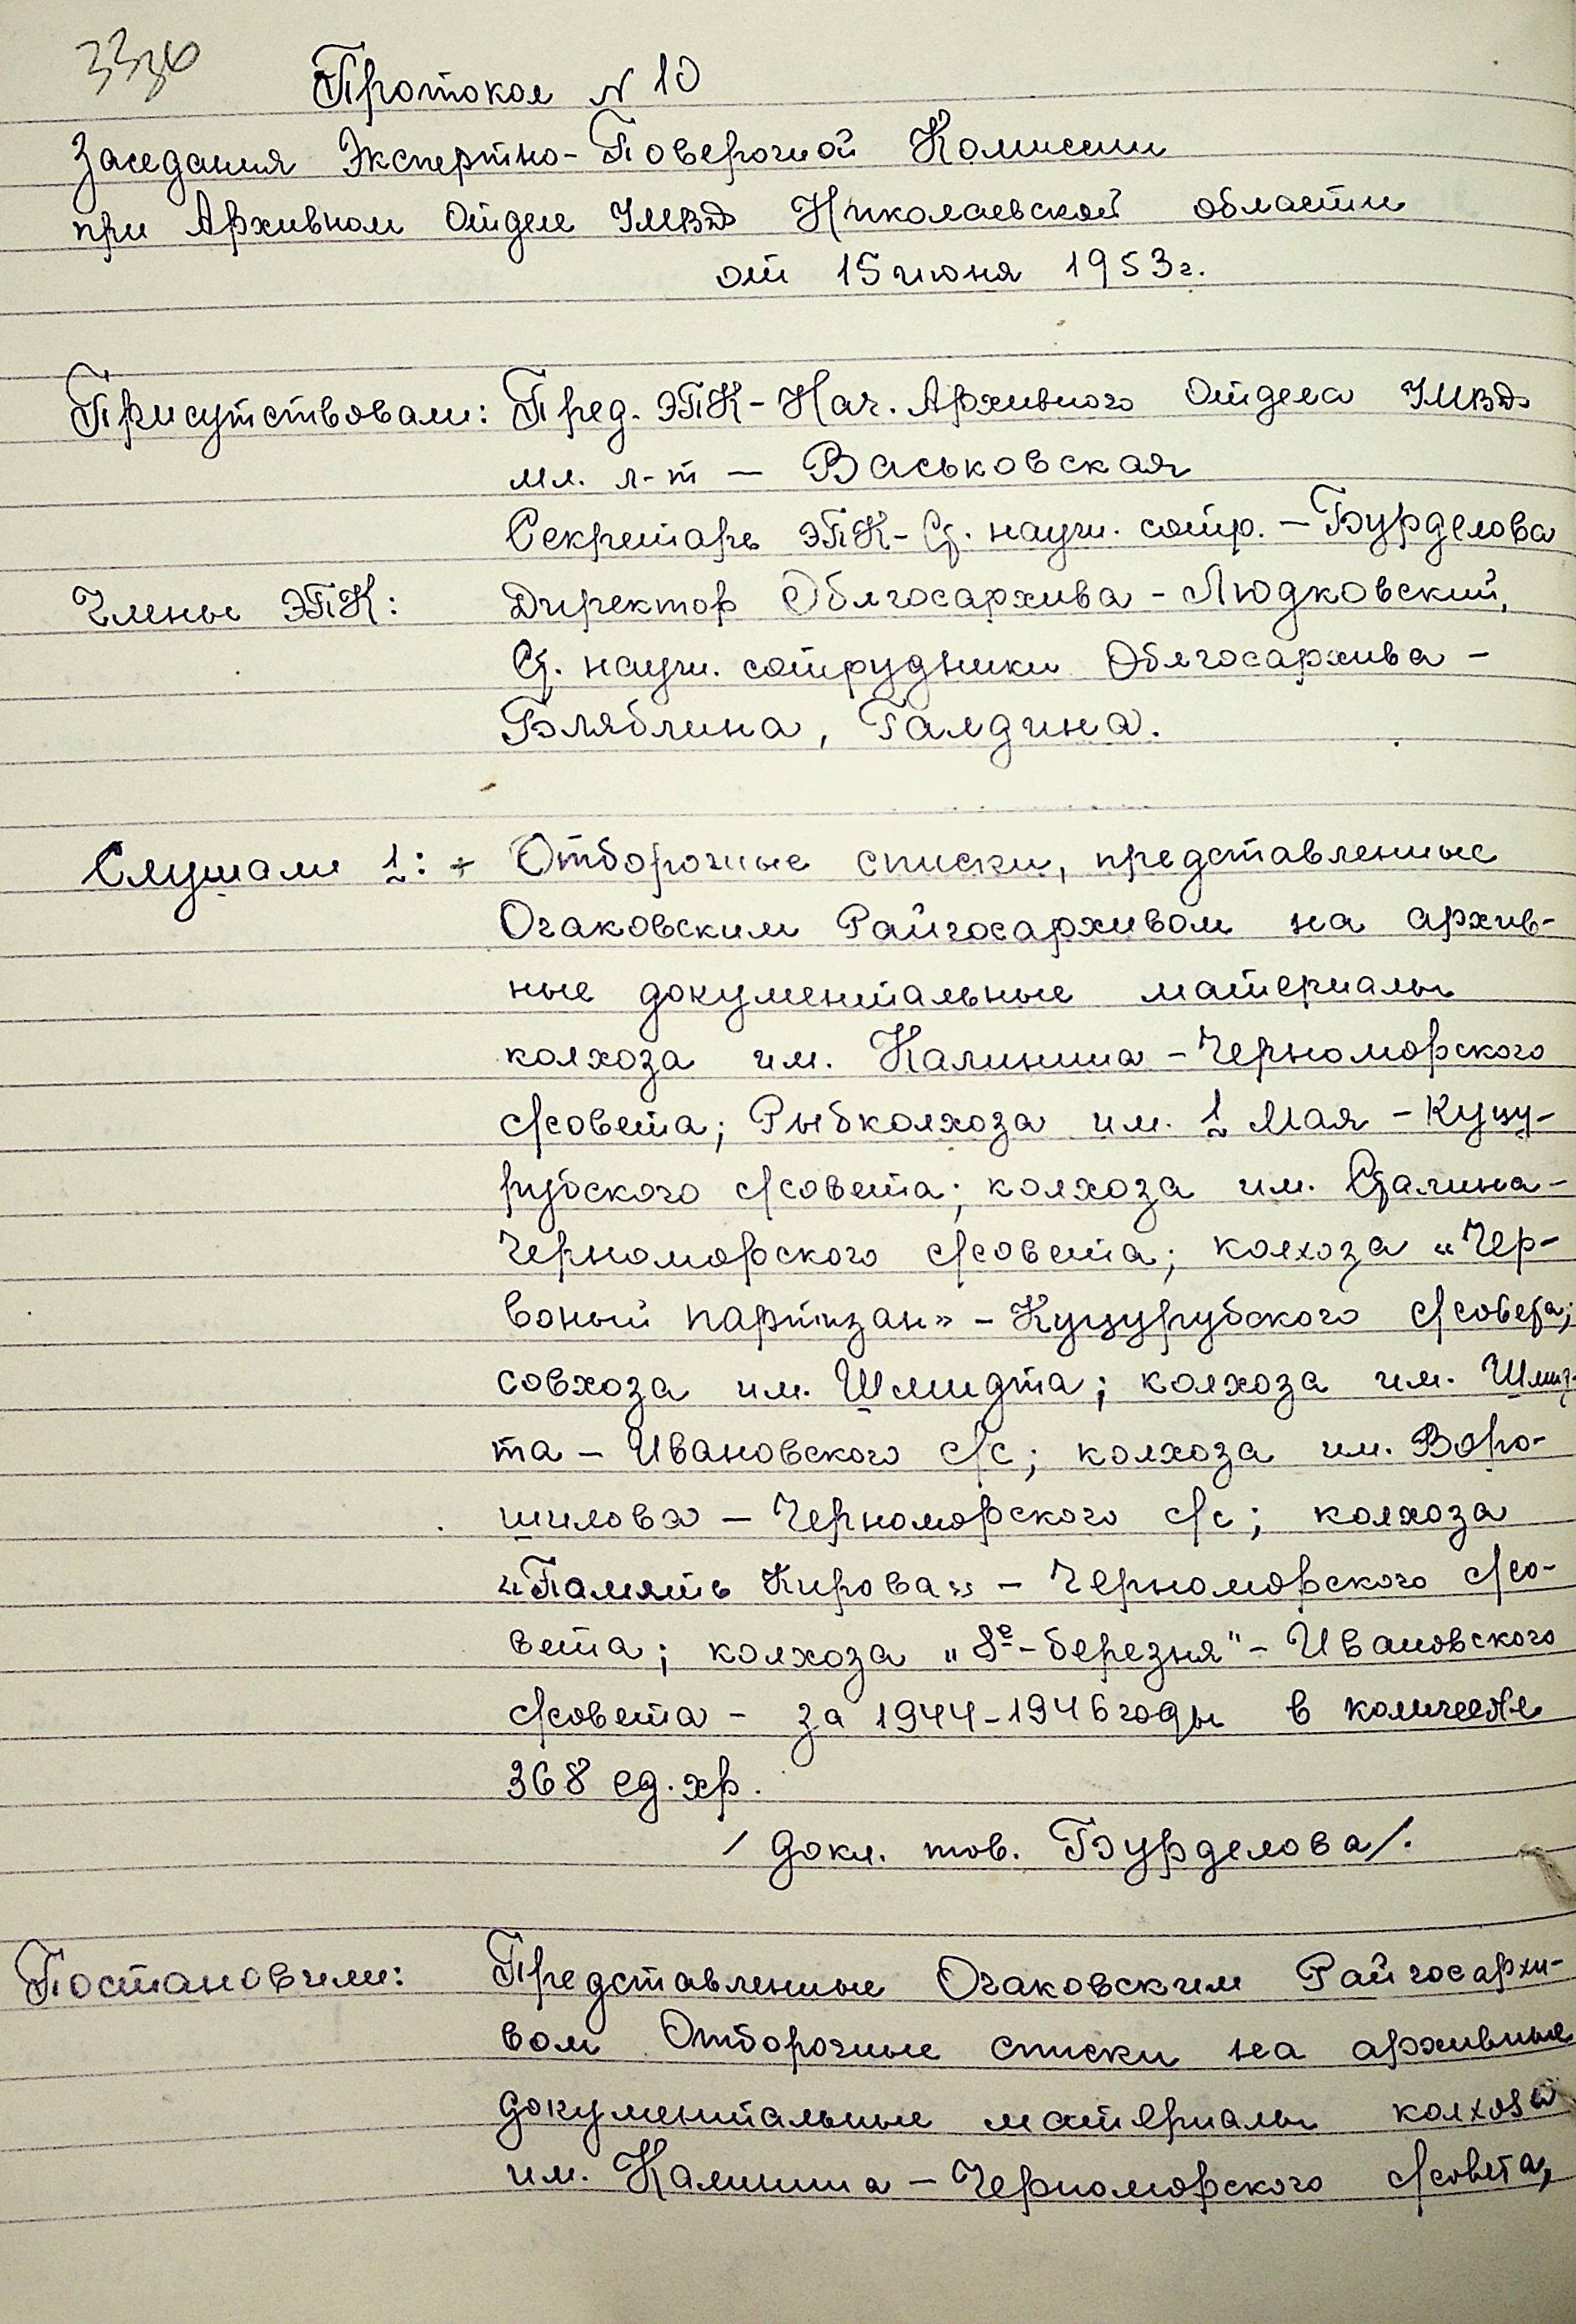 Протокол N 10
Заседания Экспертно-Поверочной Комиссии
при Архивном Отделе УМВД Николаевской области
от 15 июня 1953 г.
Присутствовали: Пред. ЭПК - Нач. Архивного Отдела УМВД
мл. л-т — Васьковская
Секретарь ЭПК - Ст. научн. сотр. — Бурделова
Члены ЭПК: Директор Облгосархива - Людковский,
Ст. научн. сотрудники Облгосархива -
Бляблина, Галдина.
Слушали 1: - Отборочные списки, представленные
Очаковским Райгосархивом на архив-
ные документальные материалы
колхоза им. Калинина - Черноморского
с/совета; Рыбколхоза им. 1 Мая - Куцу-
рубского с/совета; колхоза им. Сталина -
Черноморского с/совета; колхоза «Чер-
воный партизан» - Куцурубского с/совета;
совхоза им. Шмидта; колхоза им. Шмид-
та - Ивановского с/с; колхоза им. Воро-
шилова - Черноморского с/с; колхоза
«Память Кирова» - Черноморского с/со-
вета; колхоза „8е-березня" - Ивановского
с/совета - за 1944-1946 годы в количестве
368 ед. хр.
/ докл. тов. Бурделова/.
Постановили: Представленные Очаковским Райгосархи-
вом Отборочные списки на архивные
документальные материалы колхоза
им. Калинина - Черноморского с/совета,